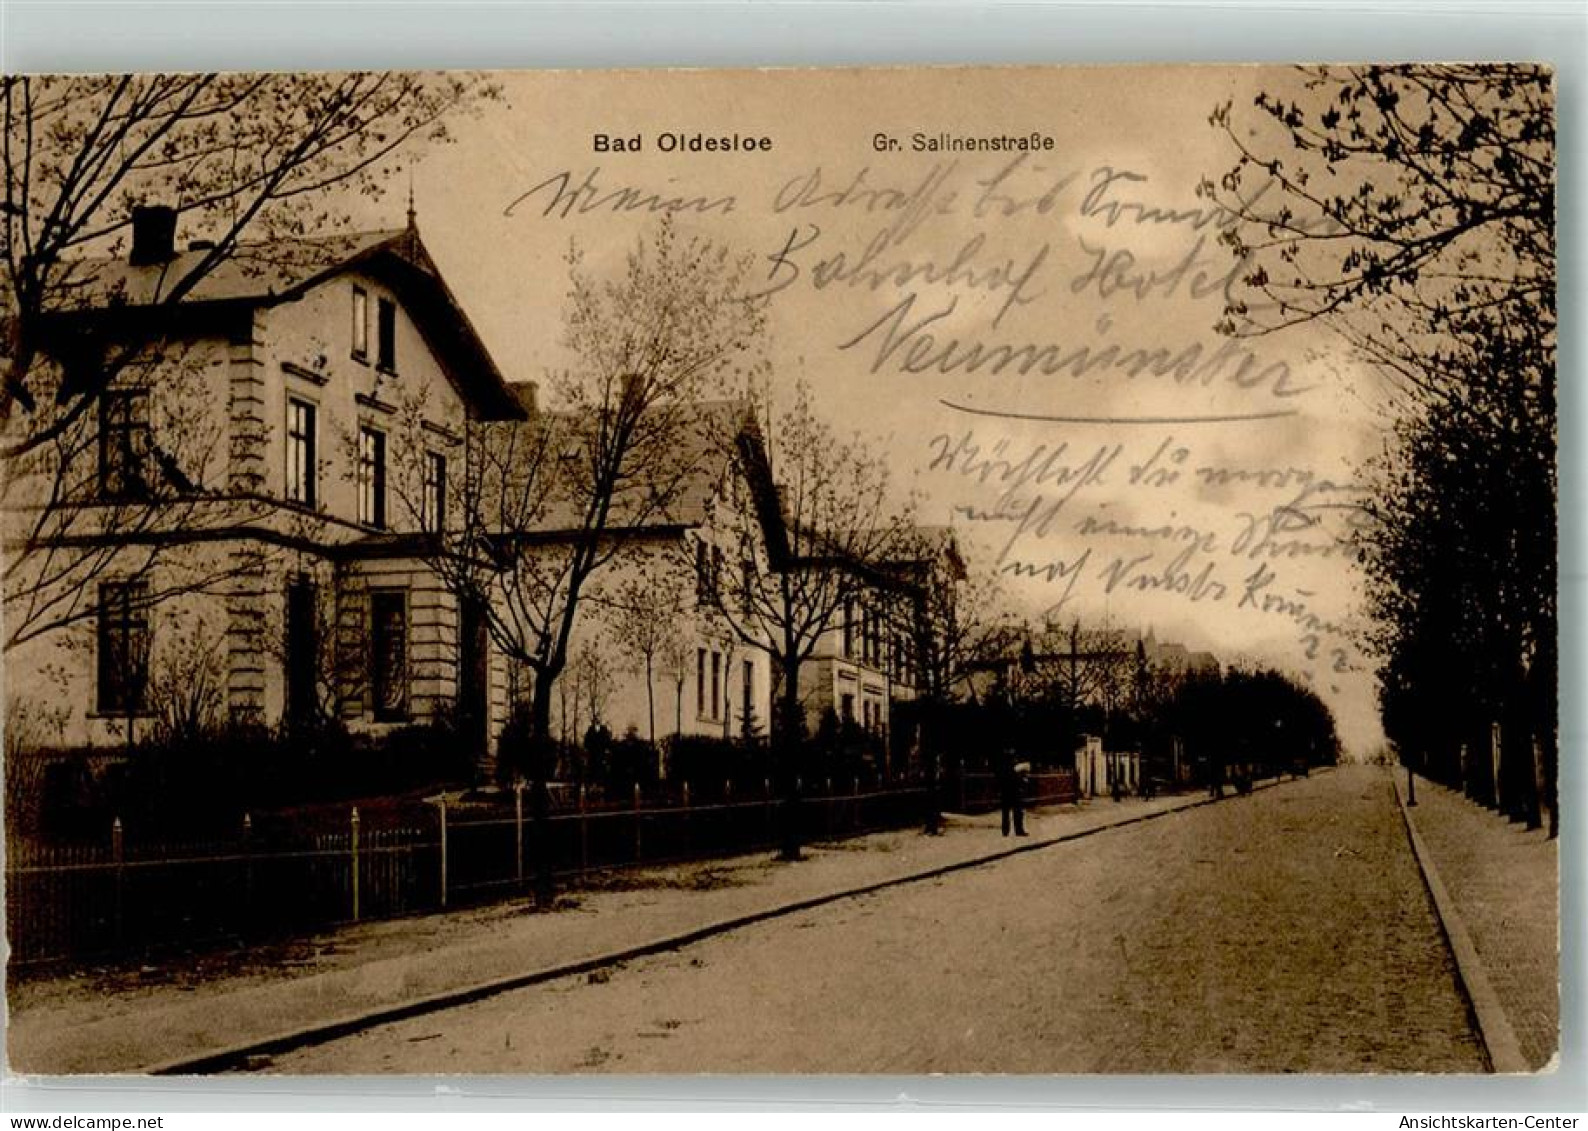 Bad Oldesloe Gr. Salinenstraße
Meine Adresse bis Sonnabend
Bahnhof Hotel
Neumünster
Möchtest du morgen
nicht einige Stunden
nach
kommen
??
oldthing
Ansichtskarten-Center